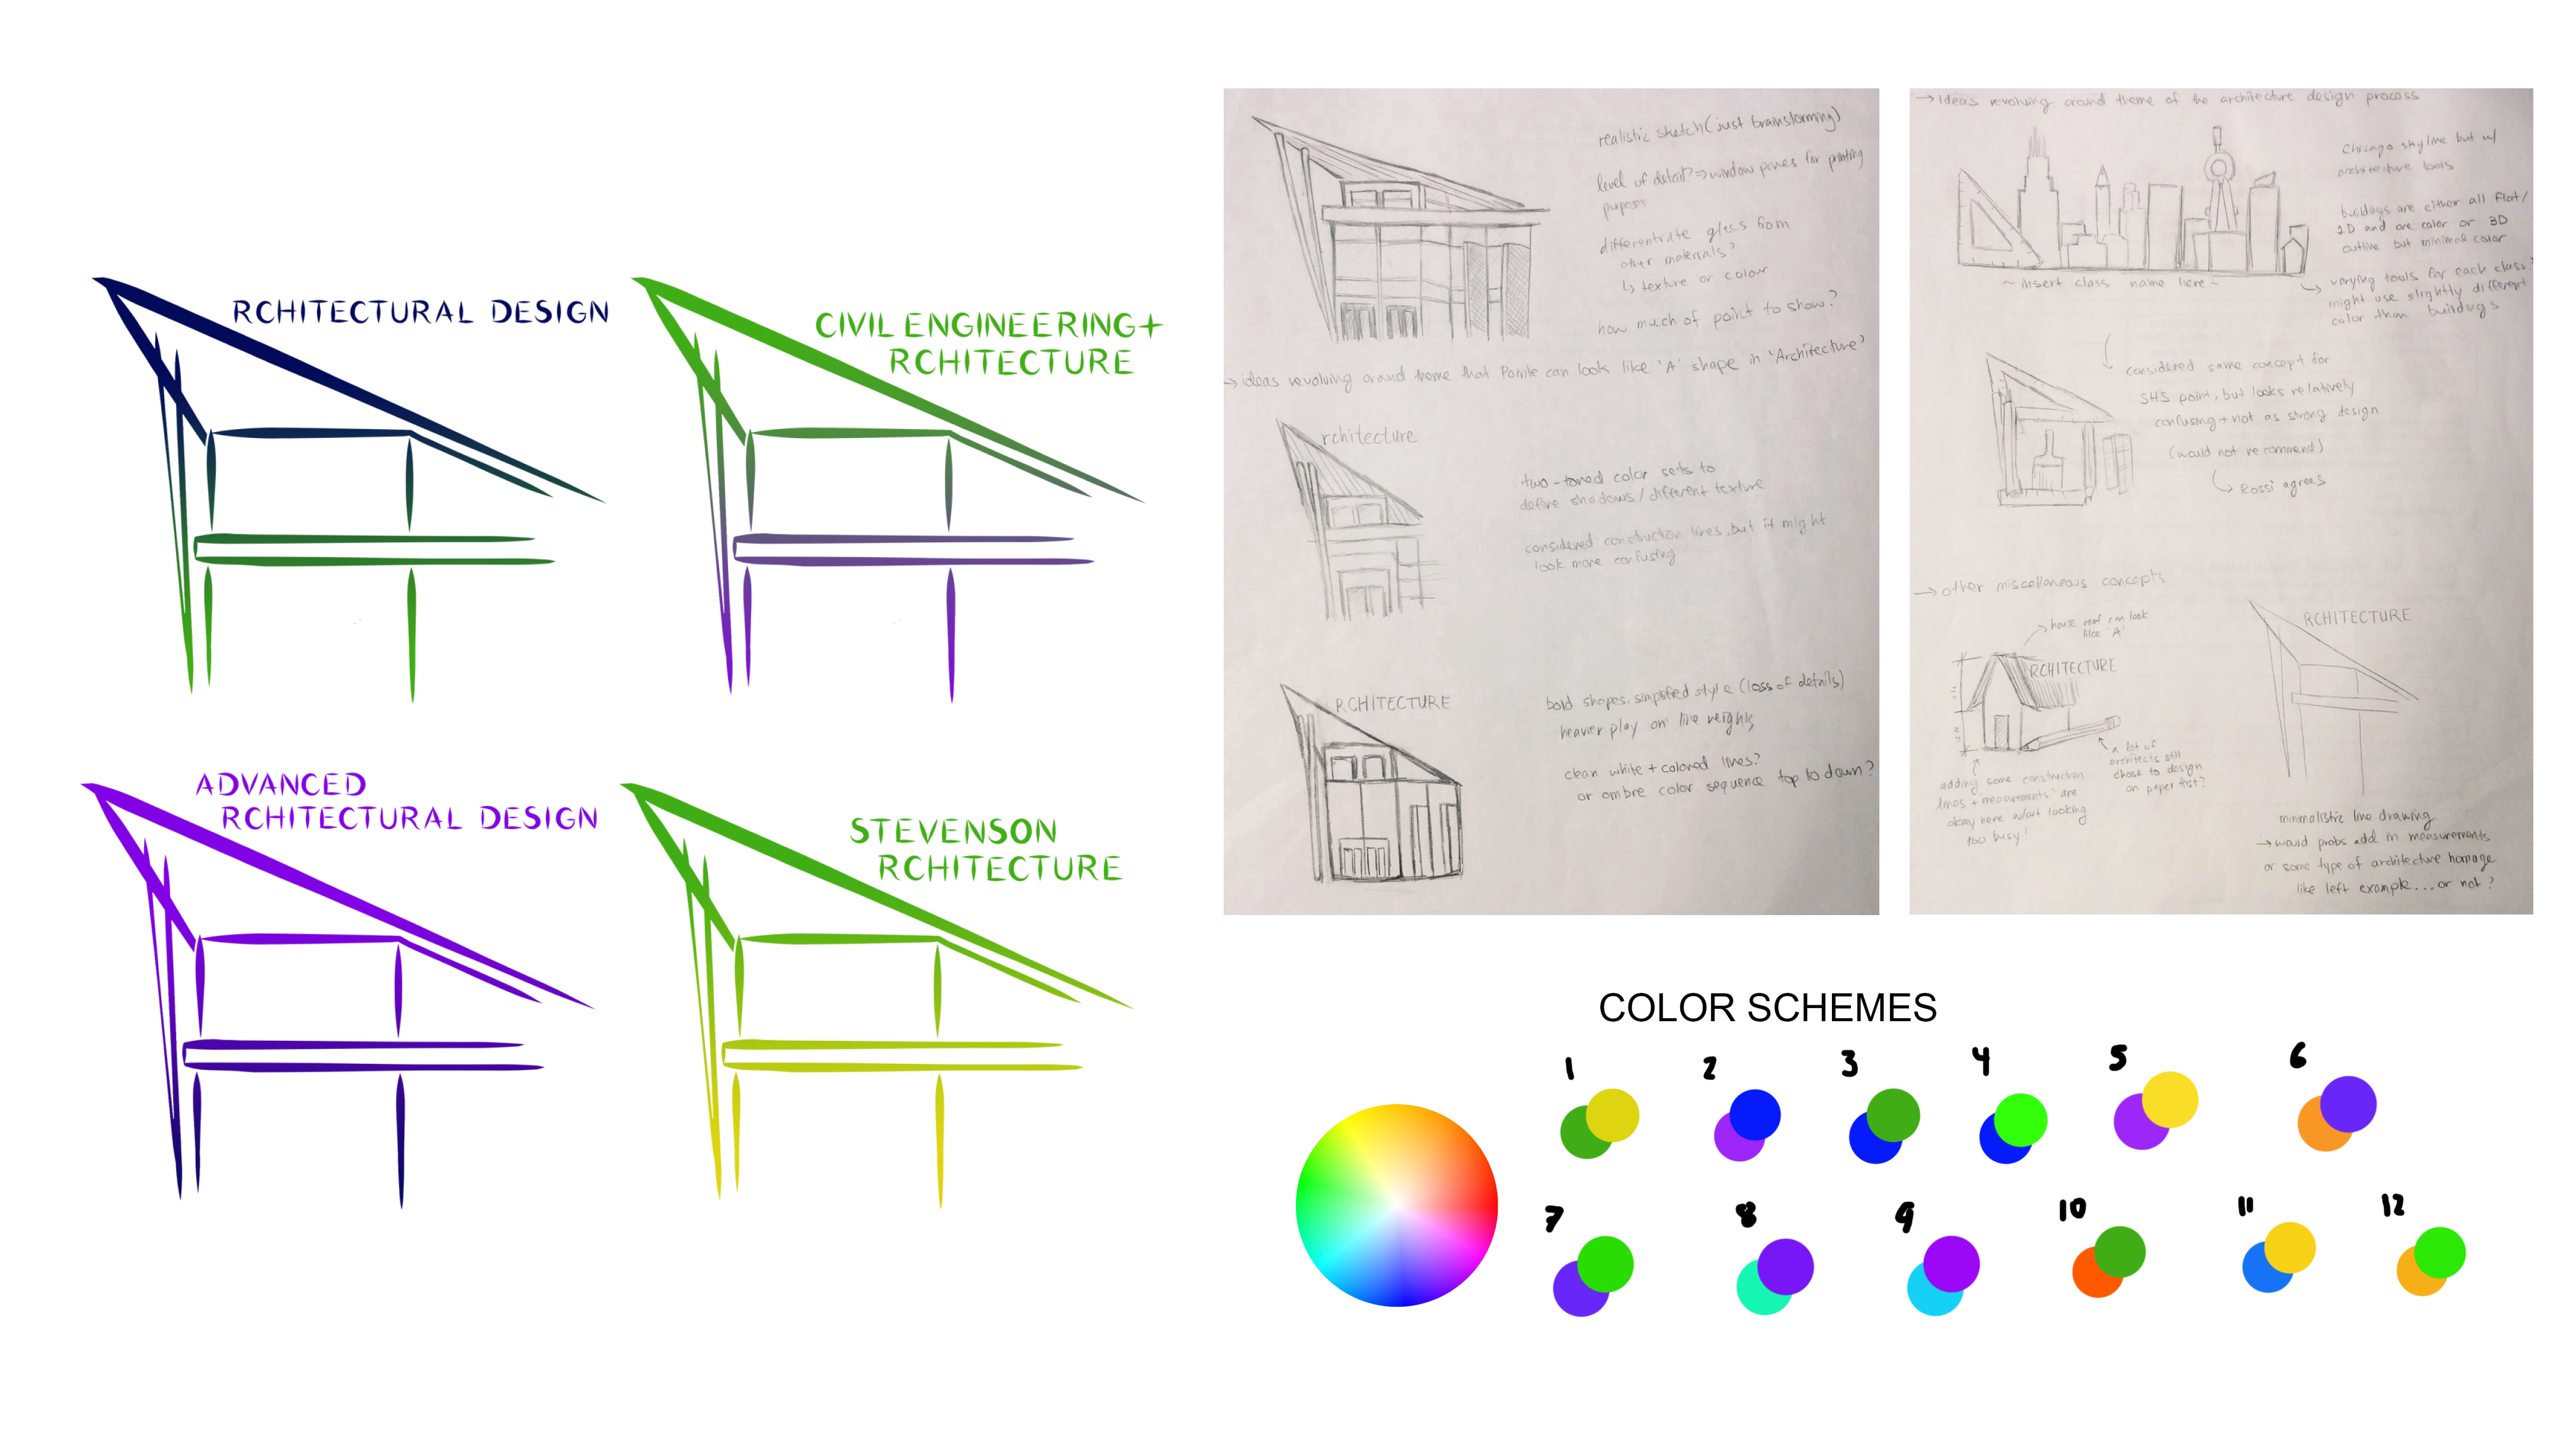 RCHITECTURAL DESIGN
CIVIL ENGINEERING+
RCHITECTURE
ADVANCED
RCHITECTURAL DESIGN
STEVENSON
RCHITECTURE
realistic sketch (just brainstorming)
level of detail? => window panes for printing
purposes
differentiate glass from
other materials?
↳ texture or colour
how much of point to show?
→ ideas revolving around theme that Pointe can look like 'A' shape in 'Architecture'
rchitecture
two-toned color sets to
define shadows / different texture
considered construction lines, but it might
look more confusing
RCHITECTURE
bold shapes, simplified style (loss of details)
heavier play on line weights
clean white + colored lines?
or ombre color sequence top to down?
→ Ideas revolving around theme of the architecture design process
Chicago skyline but w/
architecture tools
buildings are either all flat/
2D and one color or 3D
outline but minimal color
~ insert class name here ~
↳ varying tools for each class?
might use slightly different
color than buildings
considered same concept for
SHS point, but looks relatively
confusing + not as strong design
(would not recommend)
↳ Rossi agrees
→ other miscellaneous concepts
→ house roof can look
like 'A'
RCHITECTURE
a lot of
architects still
chose to design
on paper first?
adding some construction
lines + measurements are
okay here w/out looking
too busy!
RCHITECTURE
minimalistic line drawing
→ would probs add in measurements
or some type of architecture homage
like left example...or not?
COLOR SCHEMES
1 2 3 4 5 6
7 8 9 10 11 12